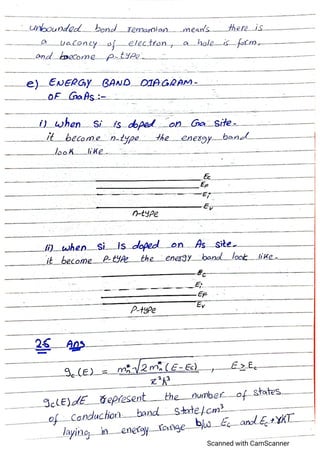 unbounded bond remaninan means there is
a vaconcy of electron, a hole is form,
and become p-type.
e) ENERGY BAND DIAGRAM-
OF GaAs :-
i) when Si is doped on Ga site.
it become n-type the energy band
look like.
Ec
EF
Ei
Ev
n-type
ii) when Si is doped on As site.
it become P-type the energy band look like.
Ec
Ei
EF
Ev
P-type
2.6 Ans
gc(E) = mn*√2mn*(E-Ec) , E ≥ Ec
π²ħ³
gc(E)dE represent the number of states
of conduction band state/cm³
laying in energy range b/w Ec and Ec+γKT
Scanned with CamScanner